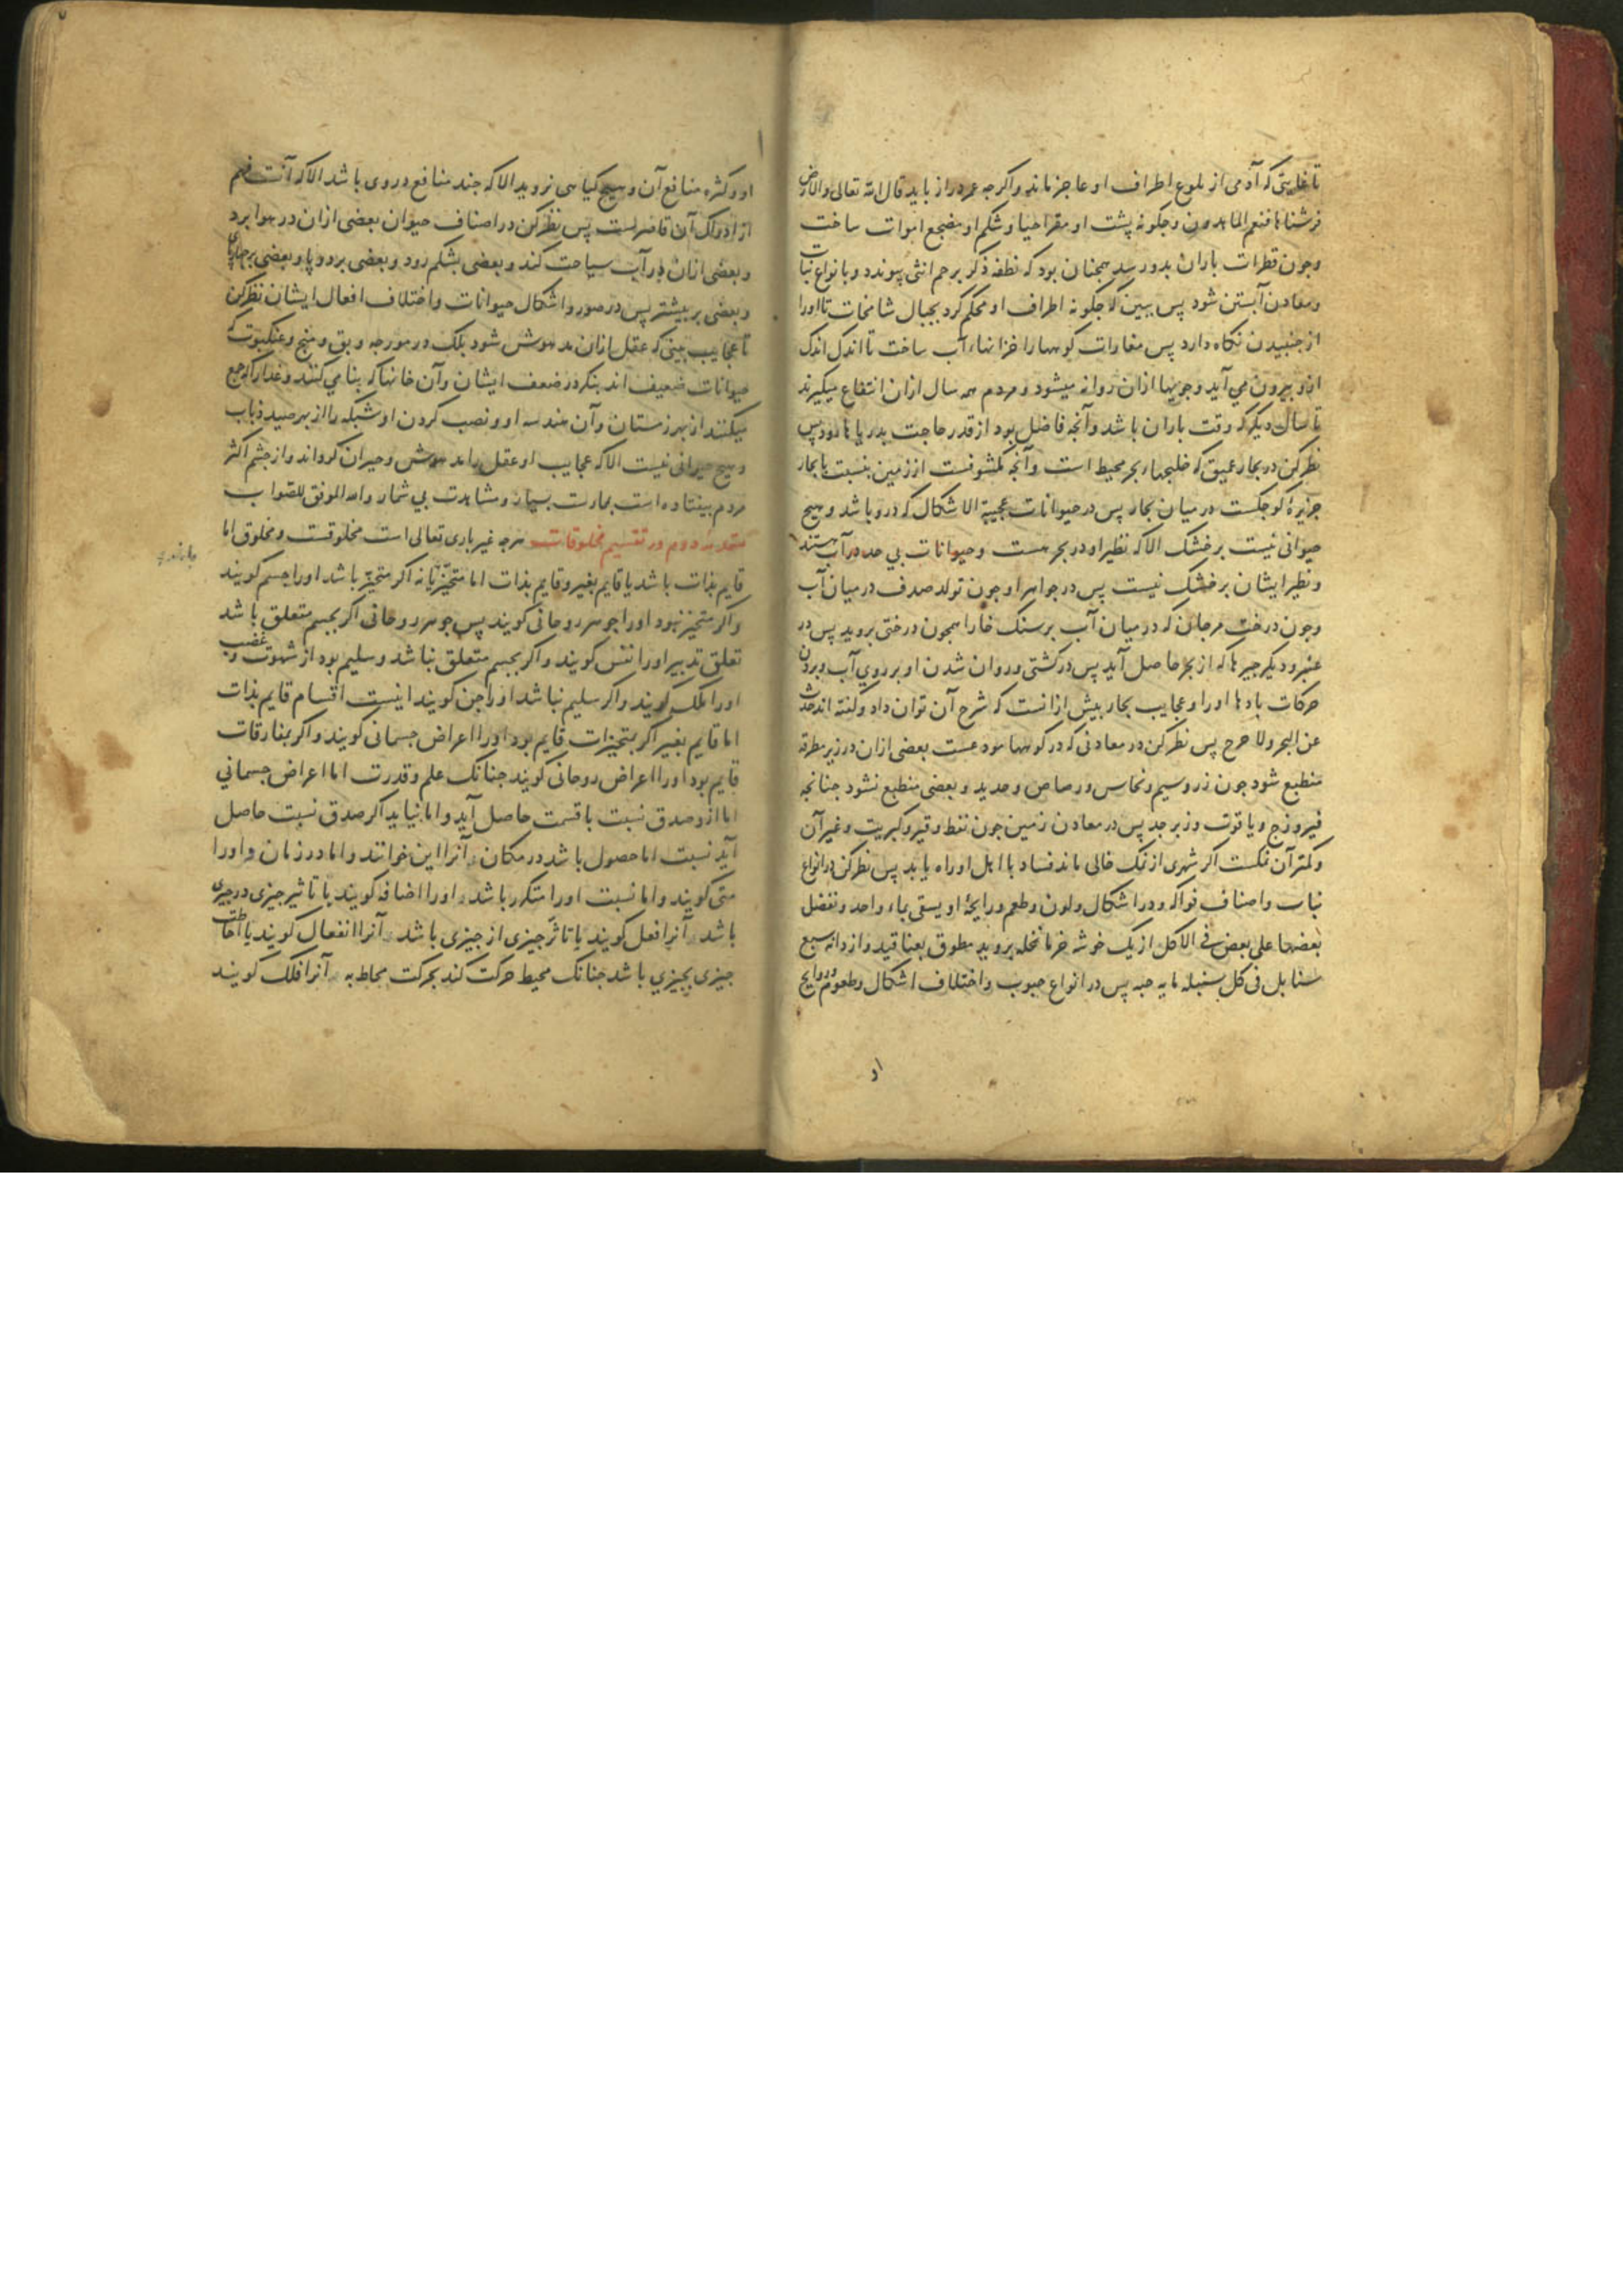 تا غایتی که آدمی از بلوغ اطراف او عاجز ماند واکرجه عمر دراز یابد قال الله تعالی والارض
فرشناها فنعم الماهدون وجکونه پشت او مقر احیا وشکم او مضجع اموات ساخت
وجون قطرات باران بدو رسد همجنان بود که نطفه ذکر برحم انثی پیوندد وبانواع نبات
ومعادن آبستن شود پس ببین که جکونه اطراف او محکم کرد بجبال شامخات تا اورا
از جنبیدن نکاه دارد پس مغارات کوهها را خزانهاء آب ساخت تا اندک اندک
ازو بیرون می آید وجویها ازان روانه میشود ومردم همه سال ازان انتفاع میکیرند
تا سال دیکر که وقت باران باشد وآنجه فاضل بود از قدر حاجت بدریاها رود پس
نظر کن در بحار عمیق که خلیجهاء بحر محیط است وآنجه مکشوفست از زمین بنسبت با بحار
جزیرهٔ کوجکست در میان بحار پس در حیوانات عجیبة الاشکال که درو باشد وهیج
حیوانی نیست بر خشک الا که نظیر او در بحر هست وحیوانات بی حد در آب هستند
ونظیر ایشان بر خشک نیست پس در جواهر او جون تولد صدف در میان آب
وجون درخت مرجان که در میان آب بر سنک خارا همجون درختی بروید پس در
عنبر ودیکر جیزها که از بحر حاصل آید پس در کشتی وروان شدن او بر روی آب وبردن
حرکات بادها اورا وعجایب بحار بیش ازانست که شرح آن توان داد وکفته اند حدث
عن البحر ولا حرج پس نظر کن در معادنی که در کوهها مودعست بعضی ازان در زیر مطرقه
منطبع شود جون زر وسیم ونحاس ورصاص وحدید وبعضی منطبع نشود جنانجه
فیروزج ویاقوت وزبرجد پس در معادن زمین جون نفط وقیر وکبریت وغیر آن
وکمتر آن نمکست اکر شهری از نمک خالی ماند فساد با اهل او راه یابد پس نظر کن در انواع
نبات واصناف فواکه ودر اشکال ولون وطعم ورایحهٔ او یسقی بماء واحد ونفضل
بعضها علی بعض فی الاکل از یک خوشه خرما نخله بروید مطوق بعناقید واز دانه سبع
سنابل فی کل سنبلة مایة حبه پس در انواع حبوب واختلاف اشکال وطعوم وروایح
او
او وکثرة منافع آن وهیج کیاهی نروید الا که جند منافع دروی باشد الا که آنست فهم
از ادراک آن قاصرست پس نظر کن در اصناف حیوان بعضی ازان در هوا پرد
وبعضی ازان در آب سیاحت کند وبعضی بشکم رود وبعضی بر دو پا وبعضی بر جهارپای
وبعضی بر بیشتر پس در صور واشکال حیوانات واختلاف افعال ایشان نظر کن
تا عجایب بینی که عقل ازان مدهوش شود بلک در مورجه وبق ومنج وعنکبوت که
حیوانات ضعیف اند بنکر در ضعف ایشان وآن خانها که بنا می کنند وغذا را که جمع
میکنند از بهر زمستان وآن هندسه او ونصب کردن او شبکه را از بهر صید ذباب
وهیج حیوانی نیست الا که عجایب او عقل را مدهوش وحیران کرداند واز جشم اکثر
مردم بیفتاده است بممارست بسیار ومشاهدت بی شمار والله الموفق للصواب
مقدمه دوم در تقسیم مخلوقات هرجه غیر باری تعالی است مخلوقست ومخلوق اما
قایم بذات باشد یا قایم بغیر وقایم بذات اما متحیز یا نه اکر متحیز باشد اورا جسم کویند
واکر متحیز نبود اورا جوهر روحانی کویند پس جوهر روحانی اکر بجسم متعلق باشد
تعلق تدبیر اورا نفس کویند واکر بجسم متعلق نباشد وسلیم بود از شهوت وغضب
اورا ملک کویند واکر سلیم نباشد اورا جن کویند اینست اقسام قایم بذات
اما قایم بغیر اکر بمتحیزات قایم بود اورا اعراض جسمانی کویند واکر بمفارقات
قایم بود اورا اعراض روحانی کویند جنانک علم وقدرت اما اعراض جسمانی
اما از وصدق نسبت یا قسمت حاصل آید واما نیاید اکر صدق نسبت حاصل
آید نسبت اما حصول باشد در مکان وآنرا این خوانند واما در زمان واورا
متی کویند واما نسبت اورا متکرر باشد واورا اضافه کویند یا تاثیر جیزی در جیزی
باشد وآنرا فعل کویند یا تاثر جیزی از جیزی باشد وآنرا انفعال کویند یا احاطت
جیزی بجیزی باشد جنانک محیط حرکت کند بحرکت محاط به وآنرا فلک کویند